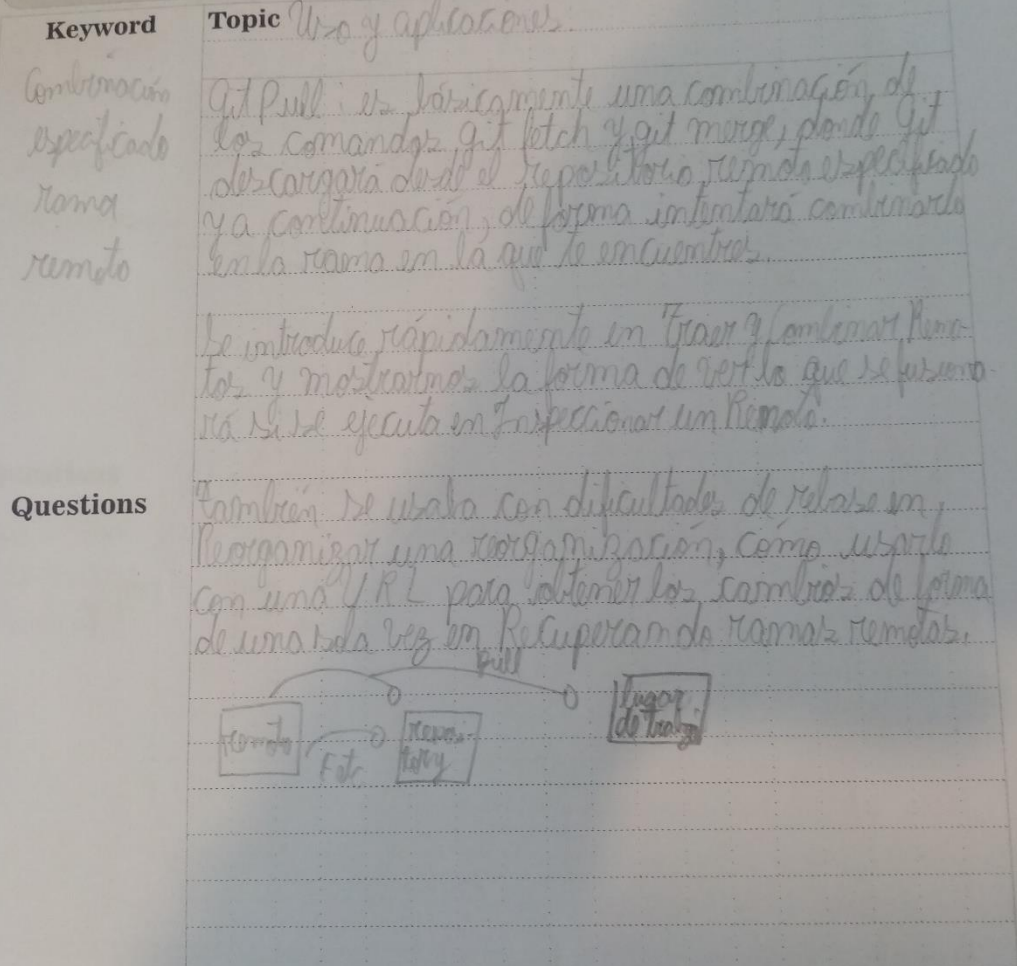 Keyword
Topic Uso y aplicaciones.
Combinación
especificado
rama
remoto
Git Pull: es básicamente una combinación de
los comandos git fetch y git merge, donde Git
descargará desde el repositorio remoto especificado
y a continuación, de forma intentará combinarlo
en la rama en la que te encuentres.
Se introduce rápidamente en Traer y Combinar Remo-
tos y mostramos la forma de ver lo que se fusiona-
rá si se ejecuta en Inspeccionar un Remoto.
Questions
También se usala con dificultades de relase en
Reorganizar una reorganización, cómo usarlo
con una URL para obtener los cambios de forma
de una sola vez en Recuperando ramas remotas.
Pull
remoto
Fetc
reposi-
tory
lugar
de trabajo